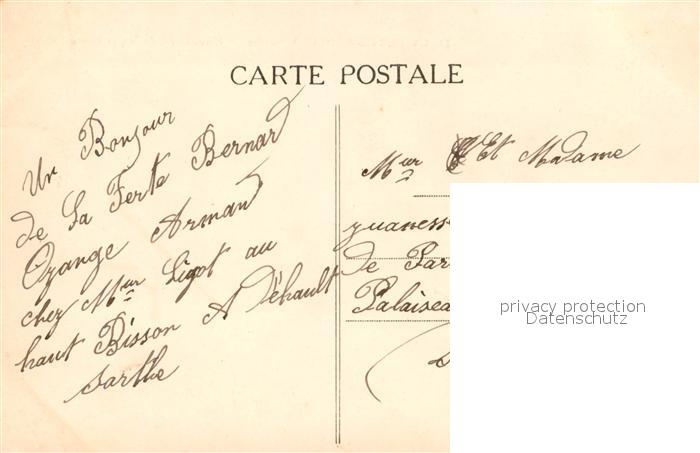 CARTE POSTALE
Un Bonjour
de La Ferte Bernard
Ozange Armand
chez Mʳ Ligot au
haut Bisson A Déhault
sarthe
Mʳ Et Madame
de Par
Palaiseau
privacy protection
Datenschutz